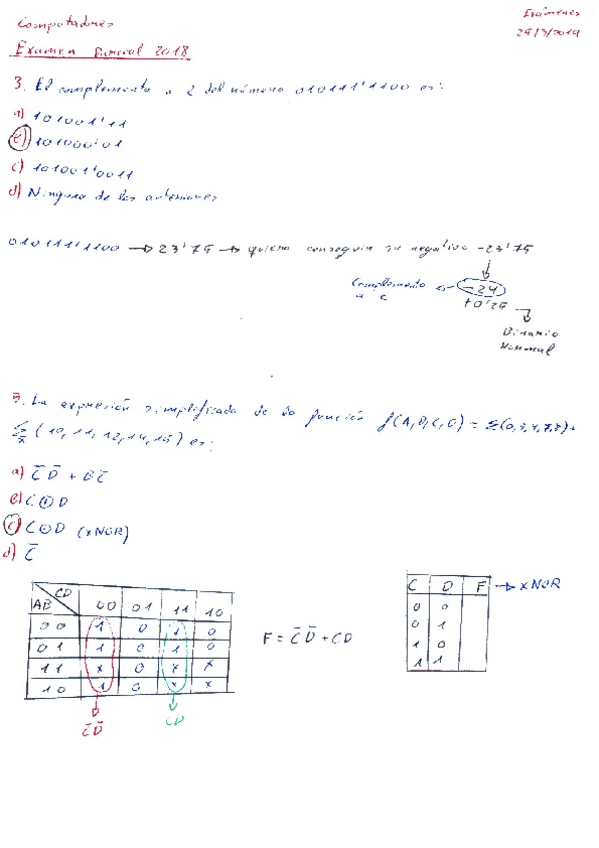 Computadores
Exámenes
29/3/2019
Examen Parcial 2018
3. El complemento a 2 del número 010111'1100 es:
a) 101001'11
b) 101000'01
c) 101001'0011
d) Ninguna de las anteriores
010111'1100 → 23'75 → quiero conseguir su negativo -23'75
Complemento a 2 ← -24
+0'25
Binario
Normal
5. La expresión simplificada de la función f(A,B,C,D) = Σ(0,3,4,7,8)+
Σx (10,11,12,14,15) es:
a) C̄ D̄ + BC̄
b) C⊕D
c) C⊙D (XNOR)
d) C̄
CD
AB 00 01 11 10
00 1 0 1 0
01 1 0 1 0
11 x 0 x x
10 1 0 x x
C̄D̄
CD
F = C̄D̄ + CD
C D F → XNOR
0 0
0 1
1 0
1 1